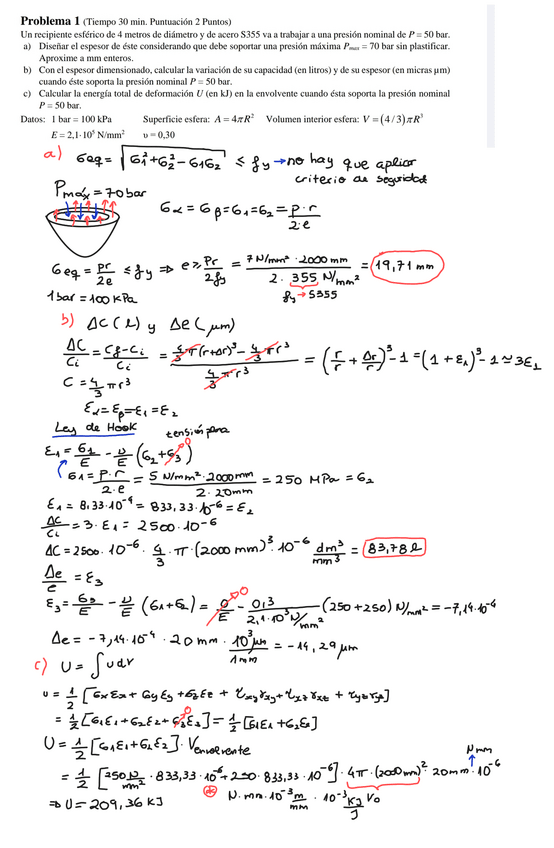 Problema 1 (Tiempo 30 min. Puntuación 2 Puntos)
Un recipiente esférico de 4 metros de diámetro y de acero S355 va a trabajar a una presión nominal de P = 50 bar.
a) Diseñar el espesor de éste considerando que debe soportar una presión máxima Pmax = 70 bar sin plastificar.
Aproxime a mm enteros.
b) Con el espesor dimensionado, calcular la variación de su capacidad (en litros) y de su espesor (en micras μm)
cuando éste soporta la presión nominal P = 50 bar.
c) Calcular la energía total de deformación U (en kJ) en la envolvente cuando ésta soporta la presión nominal
P = 50 bar.
Datos: 1 bar = 100 kPa Superficie esfera: A = 4πR² Volumen interior esfera: V = (4/3)πR³
E = 2,1·10⁵ N/mm² υ = 0,30
a) σeq = √(σ1² + σ2² - σ1σ2) ≤ fy → no hay que aplicar
criterio de seguridad
Pmáx = 70 bar
σα = σβ = σ1 = σ2 = p·r / 2·e
σeq = pr/2e ≤ fy ⇒ e ≥ pr/2fy = 7 N/mm² · 2000 mm / 2 · 355 N/mm² = 19,71 mm
1 bar = 100 KPa fy → S355
b) ΔC (l) y Δe (μm)
ΔC/Ci = Cf - Ci / Ci = 4/3 π (r+Δr)³ - 4/3 π r³ / 4/3 π r³ = (r/r + Δr/r)³ - 1 = (1 + ε1)³ - 1 ≃ 3ε1
C = 4/3 π r³
εα = εβ = ε1 = ε2
Ley de Hook tensión plana
ε1 = σ1/E - υ/E (σ2 + σ3) 0
σ1 = p·r / 2·e = 5 N/mm² · 2000 mm / 2 · 20 mm = 250 MPa = σ2
ε1 = 8,33·10⁻⁴ = 833,33·10⁻⁶ = ε2
ΔC/Ci = 3·ε1 = 2500·10⁻⁶
ΔC = 2500·10⁻⁶ · 4/3 · π · (2000 mm)³ · 10⁻⁶ dm³/mm³ = 83,78 l
Δe/e = ε3
ε3 = σ3/E - υ/E (σ1 + σ2) = 0/E 0 - 0,3 / 2,1·10⁵ N/mm² (250 + 250) N/mm² = -7,14·10⁻⁴
Δe = -7,14·10⁻⁴ · 20 mm · 10³ μm / 1 mm = -14,29 μm
c) U = ∫ u dv
u = 1/2 [σx εx + σy εy + σz εz + τxy γxy + τxz γxz + τyz γyz]
= 1/2 [σ1 ε1 + σ2 ε2 + σ3 ε3] 0 = 1/2 [σ1 ε1 + σ2 ε2]
U = 1/2 [σ1 ε1 + σ2 ε2] · Venvolvente
N mm
= 1/2 [250 N/mm² · 833,33·10⁻⁶ + 250 · 833,33·10⁻⁶] · 4π · (2000 mm)² · 20 mm · 10⁻⁶
⇒ U = 209,36 KJ N·mm·10⁻³ m/mm · 10⁻³ KJ/J